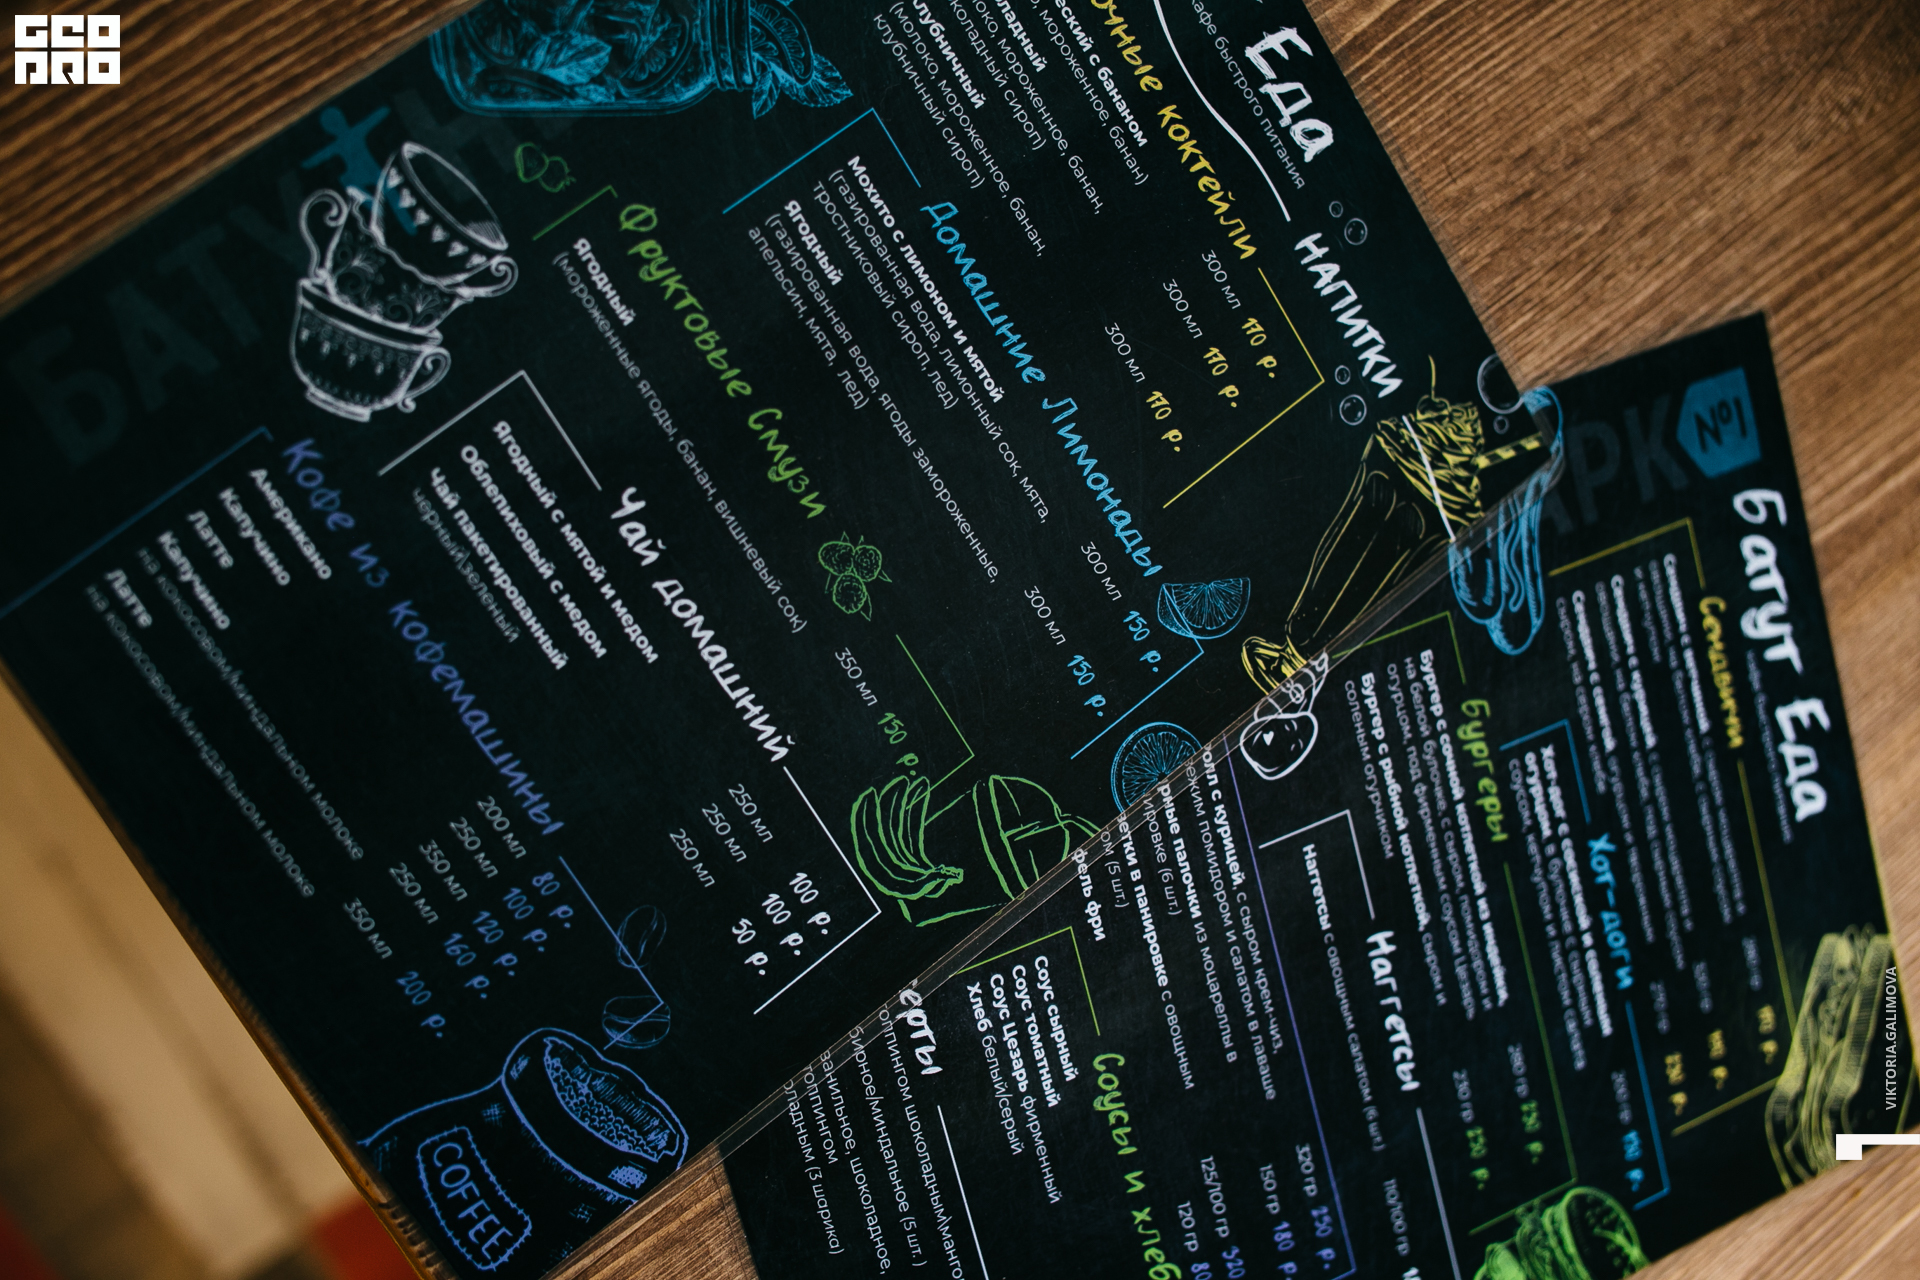 GEO
PRO
БАТУТН
Еда
кафе быстрого питания
НАПИТКИ
очные коктейли
еский с бананом
о, мороженное, банан)
оладный
око, мороженное, банан,
коладный сироп)
лубничный
(молоко, мороженное, банан,
клубничный сироп)
300 мл 170 р.
300 мл 170 р.
300 мл 170 р.
Домашние Лимонады
Мохито с лимоном и мятой
(газированная вода, лимонный сок, мята,
тростниковый сироп, лед)
300 мл 150 р.
Ягодный
(газированная вода, ягоды замороженные,
апельсин, мята, лед)
300 мл 150 р.
Фруктовые Смузи
Ягодный
(мороженные ягоды, банан, вишневый сок)
350 мл 150 р.
Чай домашний
Ягодный с мятой и медом
250 мл 100 р.
Облепиховый с медом
250 мл 100 р.
Чай пакетированный
черный\зеленый
250 мл 50 р.
Кофе из кофемашины
Американо
200 мл 80 р.
Капучино
250 мл 100 р.
Латте
350 мл 120 р.
Капучино
на кокосовом/миндальном молоке
250 мл 160 р.
Латте
на кокосовом/миндальном молоке
350 мл 200 р.
COFFEE
АРК
№1
Батут Еда
Сендвичи
Хот-доги
Хот-дог с сосиской и соленым
огурцом, в булочке с сырным
соусом, кетчупом и листом салата
Бургеры
Бургер с сочной котлетой из индейки,
на белой булочке, с сыром, помидором и
огурцом, под фирменным соусом Цезарь
Бургер с рыбной котлетой, сыром и
соленым огурчиком
230 гр 230 р.
Наггетсы
Наггетсы с овощным салатом (6 шт.)
110/100 гр
олл с курицей, с сыром крем-чиз,
ежим помидором и салатом в лаваше
320 гр 250 р.
рные палочки из моцареллы в
ировке (6 шт.)
150 гр 180 р.
ветки в панировке с овощным
ом (5 шт.)
125/100 гр 320
фель фри
120 гр 80
Соусы и хлеб
Соус сырный
Соус томатный
Соус Цезарь фирменный
Хлеб белый/серый
серты
топпингом шоколадным\манго
бирное/миндальное (5 шт.)
ванильное, шоколадное,
топпингом
оладным (3 шарика)
VIKTORIA.GALIMOVA